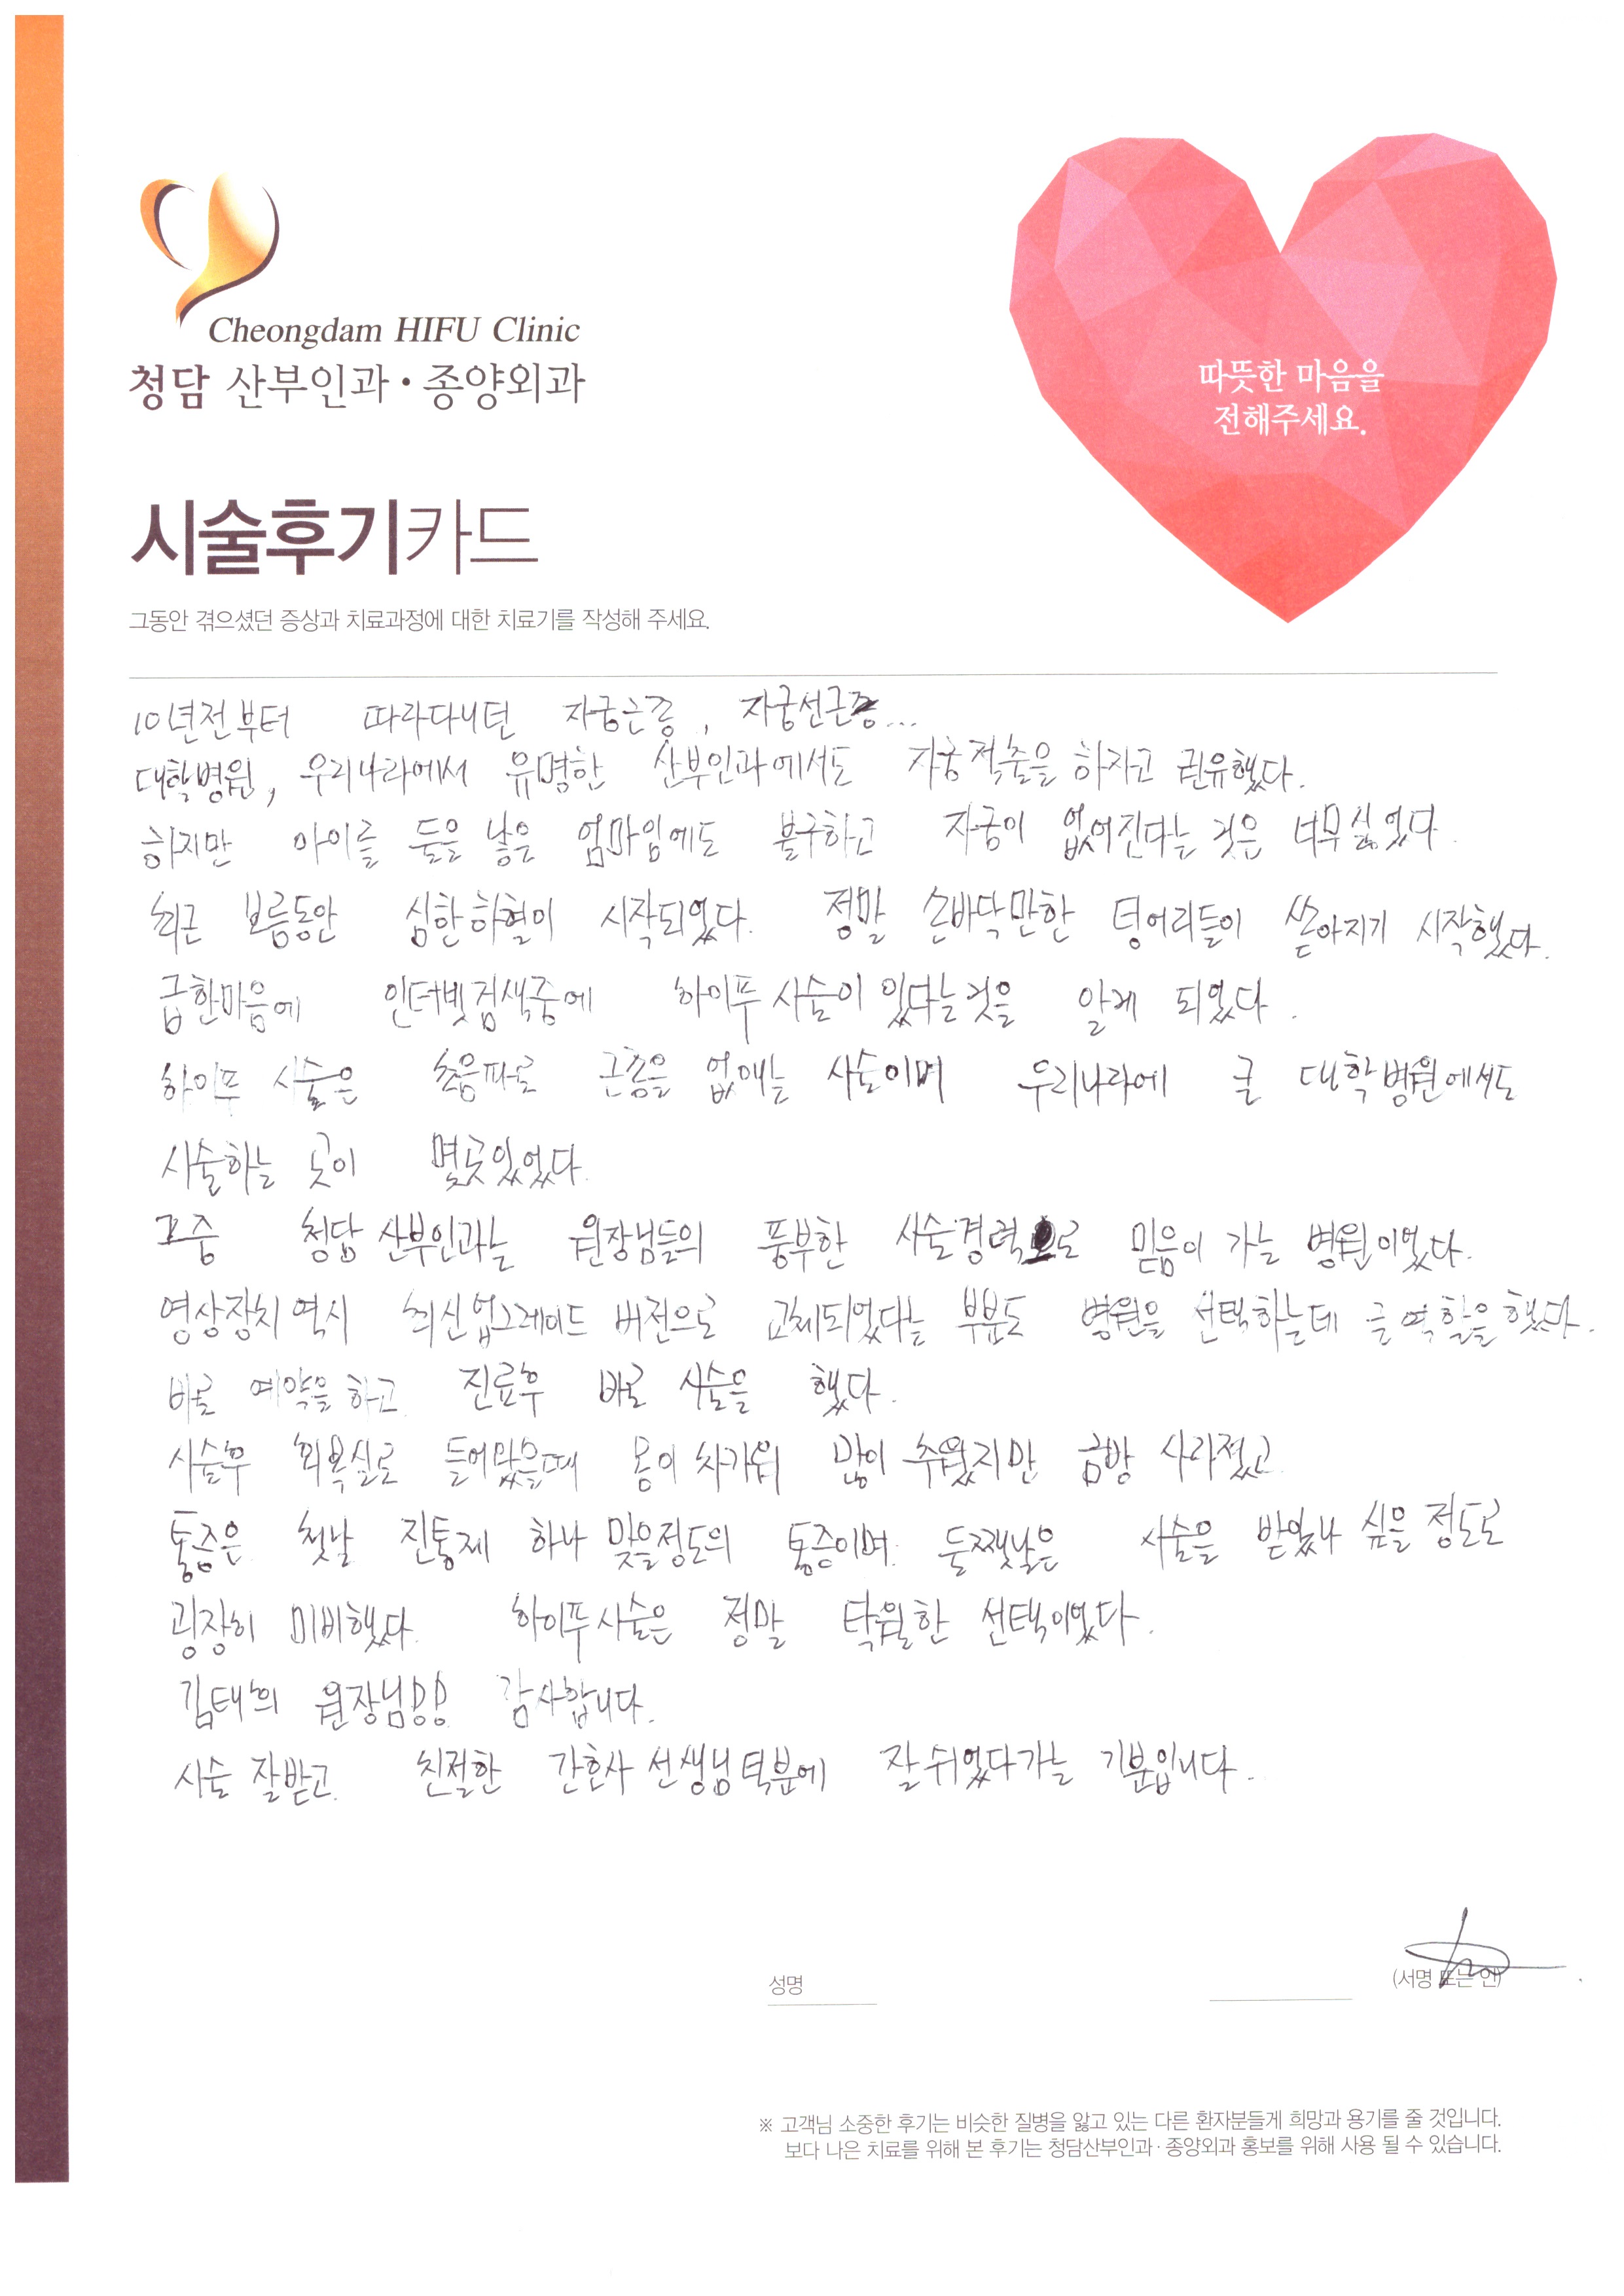 Cheongdam HIFU Clinic
청담 산부인과·종양외과
따뜻한 마음을
전해주세요.
시술후기카드
그동안 겪으셨던 증상과 치료과정에 대한 치료기를 작성해 주세요.
10년전부터 따라다니던 자궁근종, 자궁선근증...
대학병원, 우리나라에서 유명한 산부인과에서도 자궁적출을 하자고 권유했다.
하지만 아이를 둘을 낳은 엄마임에도 불구하고 자궁이 없어진다는 것은 너무 싫었다.
최근 보름동안 심한하혈이 시작되었다. 정말 손바닥만한 덩어리들이 쏟아지기 시작했다.
급한마음에 인터넷검색중에 하이푸 시술이 있다는것을 알게 되었다.
하이푸 시술은 초음파로 근종을 없애는 시술이며 우리나라에 큰 대학병원에서도
시술하는 곳이 몇곳있었다.
그중 청담산부인과는 원장님들의 풍부한 시술경력으로 믿음이 가는 병원이었다.
영상장치역시 최신업그레이드 버전으로 교체되었다는 부분도 병원을 선택하는데 큰역할을 했다.
바로 예약을하고 진료후 바로 시술을 했다.
시술후 회복실로 들어왔을때 몸이 차가워 많이 추웠지만 금방 사라졌고
통증은 첫날 진통제 하나 맞을정도의 통증이며 둘쨋날은 시술을 받았나 싶을 정도로
굉장히 미비했다. 하이푸시술은 정말 탁월한 선택이었다.
김태희 원장님!! 감사합니다.
시술 잘받고 친절한 간호사 선생님덕분에 잘쉬었다가는 기분입니다.
성명 (서명 또는 인)
※ 고객님 소중한 후기는 비슷한 질병을 앓고 있는 다른 환자분들게 희망과 용기를 줄 것입니다.
보다 나은 치료를 위해 본 후기는 청담산부인과·종양외과 홍보를 위해 사용 될 수 있습니다.